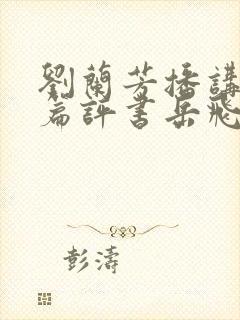 劉蘭芳播講
篇評書岳飛
彭濤